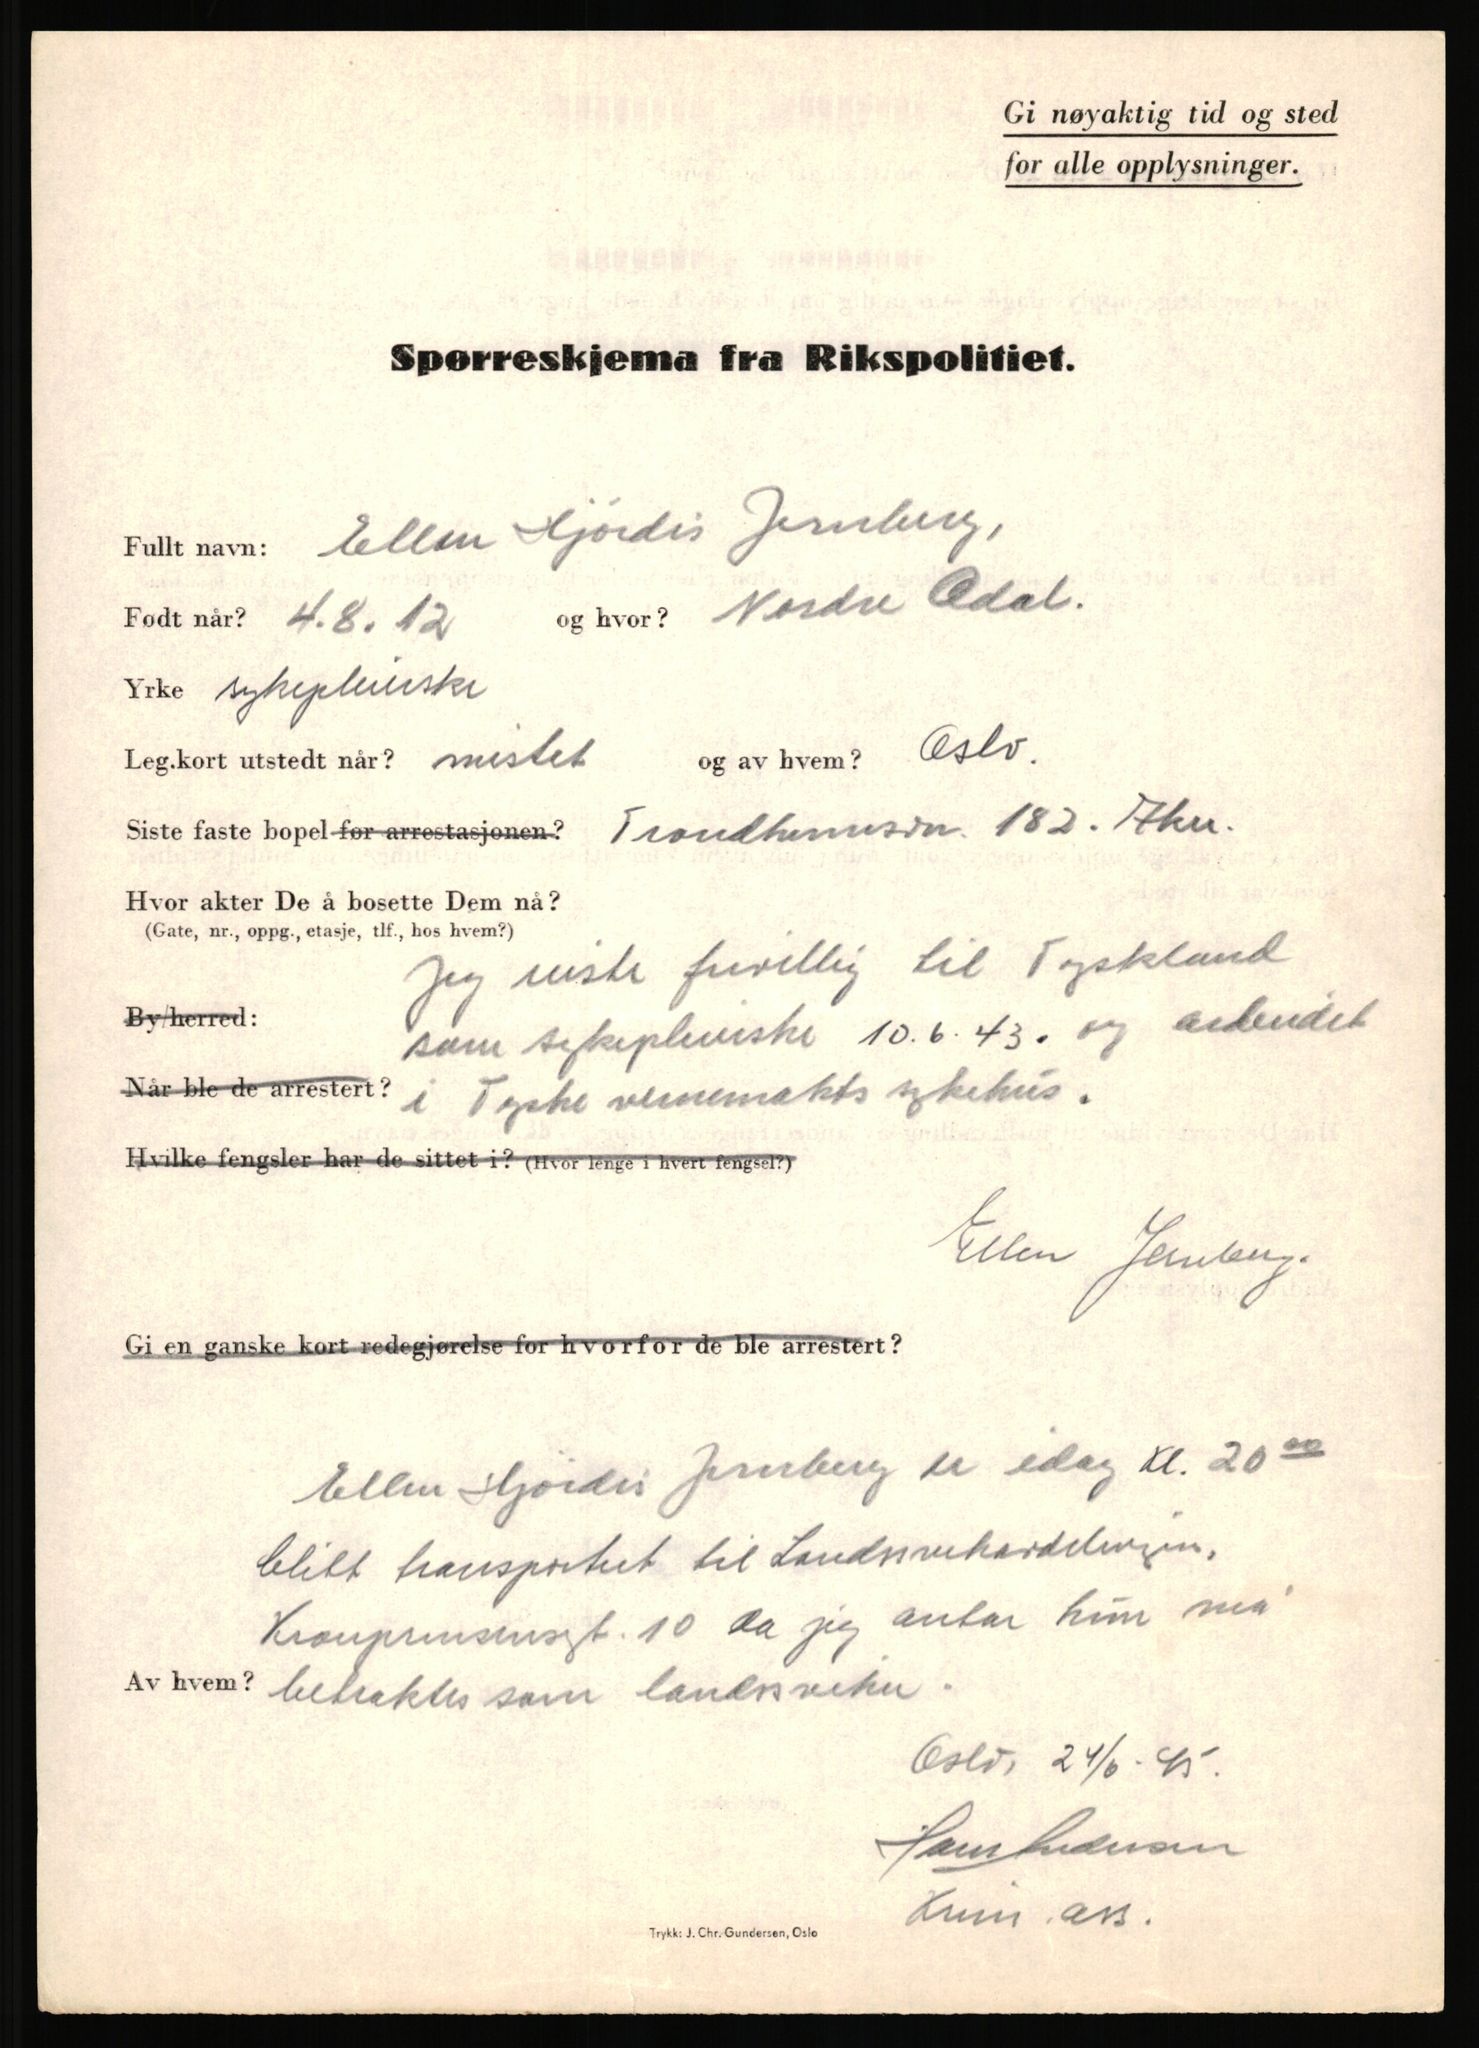 Gi nøyaktig tid og sted
for alle opplysninger.
Spørreskjema fra Rikspolitiet.
Fullt navn: Ellen Hjördis Jernberg,
Født når? 4.8.12 og hvor? Nordre Odal.
Yrke sykepleierske
Leg.kort utstedt når? mistet og av hvem? Oslo.
Siste faste bopel før arrestasjonen? Trondhemsvn. 182. Aker.
Hvor akter De å bosette Dem nå?
(Gate, nr., oppg., etasje, tlf., hos hvem?)
Jeg reiste frivillig til Tyskland
By/herred: som sykepleierske 10.6.43. og arbeidet
Når ble de arrestert? i Tyske vernemakts sykehus.
Hvilke fengsler har de sittet i? (Hvor lenge i hvert fengsel?)
Ellen Jernberg.
Gi en ganske kort redegjørelse for hvorfor de ble arrestert?
Ellen Hjördis Jernberg er idag kl. 20 00
blitt transportert til Landssvikavdelingen,
Kronprinsensgt. 10 da jeg antar hun må
Av hvem? betraktes som landssviker.
Oslo, 24/6-45.
Hans Andersen
Krim. ass.
Trykk: J. Chr. Gundersen, Oslo